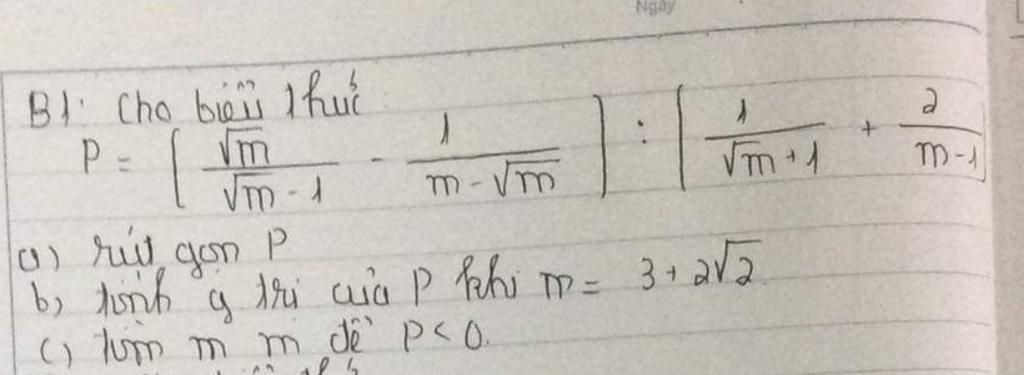 Ngày
B1: Cho biểu thức
P = [ \frac{\sqrt{m}}{\sqrt{m} - 1} - \frac{1}{m - \sqrt{m}} ] : [ \frac{1}{\sqrt{m} + 1} + \frac{2}{m - 1} ]
a) rút gọn P
b) tính g trị của P khi m = 3 + 2\sqrt{2}
c) tìm m m để P < 0.